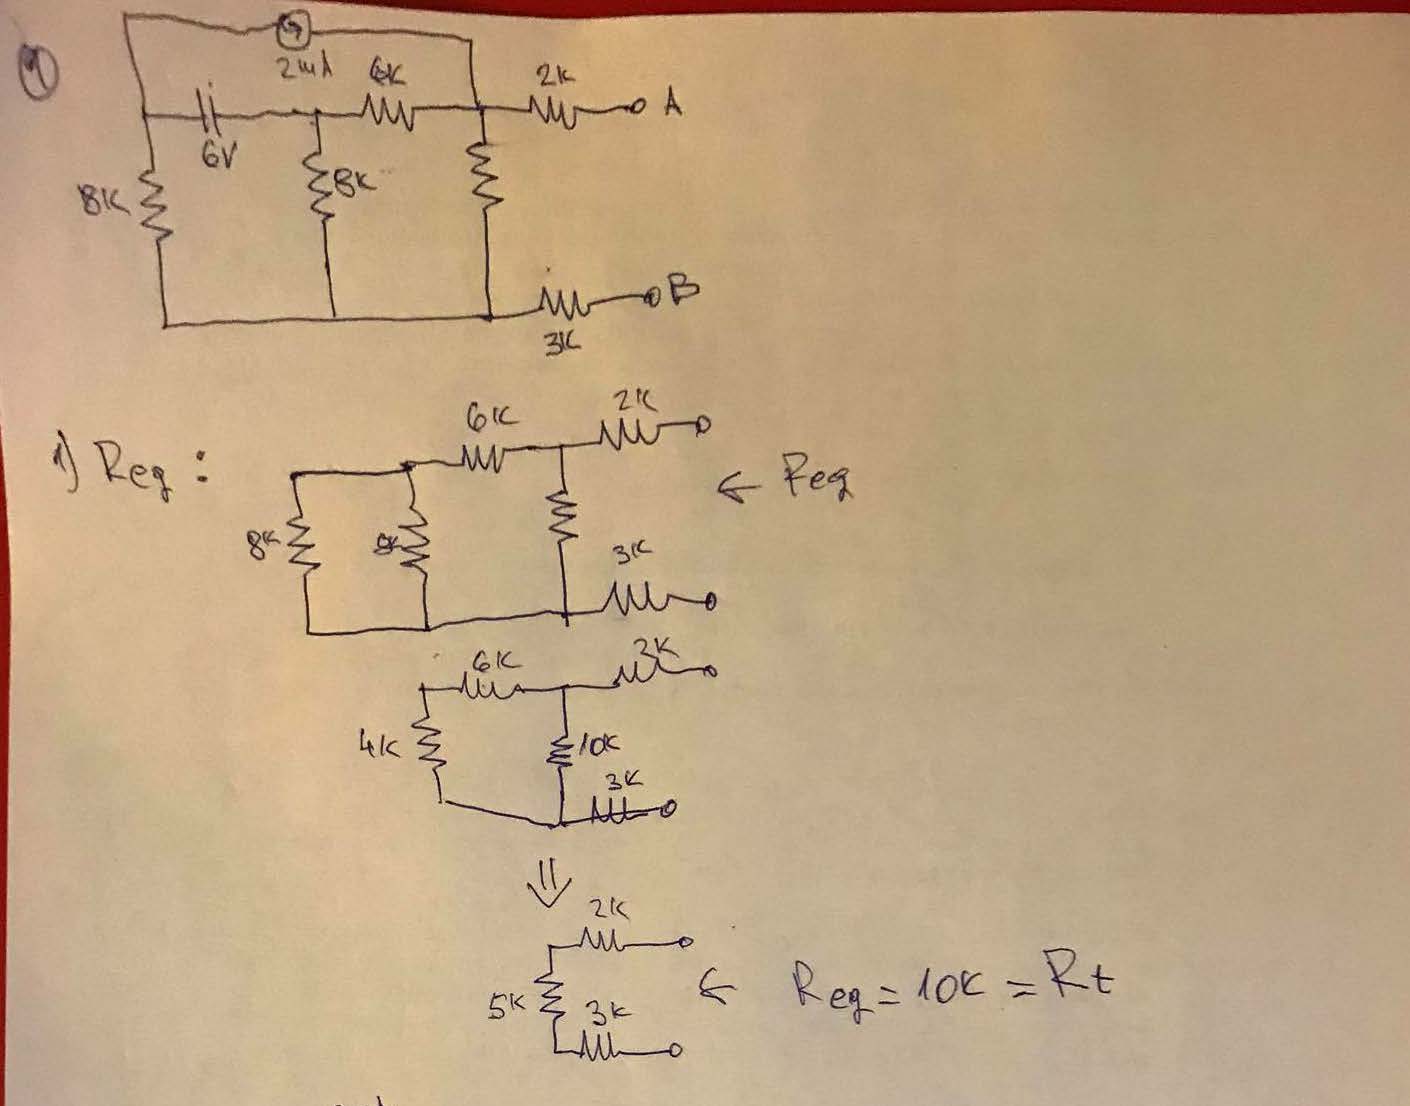 1
2mA
6K
2K
A
6V
8K
8K
B
3K
6K
2K
1) Req :
← Req
8K
8K
3K
6K
2K
4K
10K
3K
⇓
2K
5K
← Req = 10K = Rt
3K